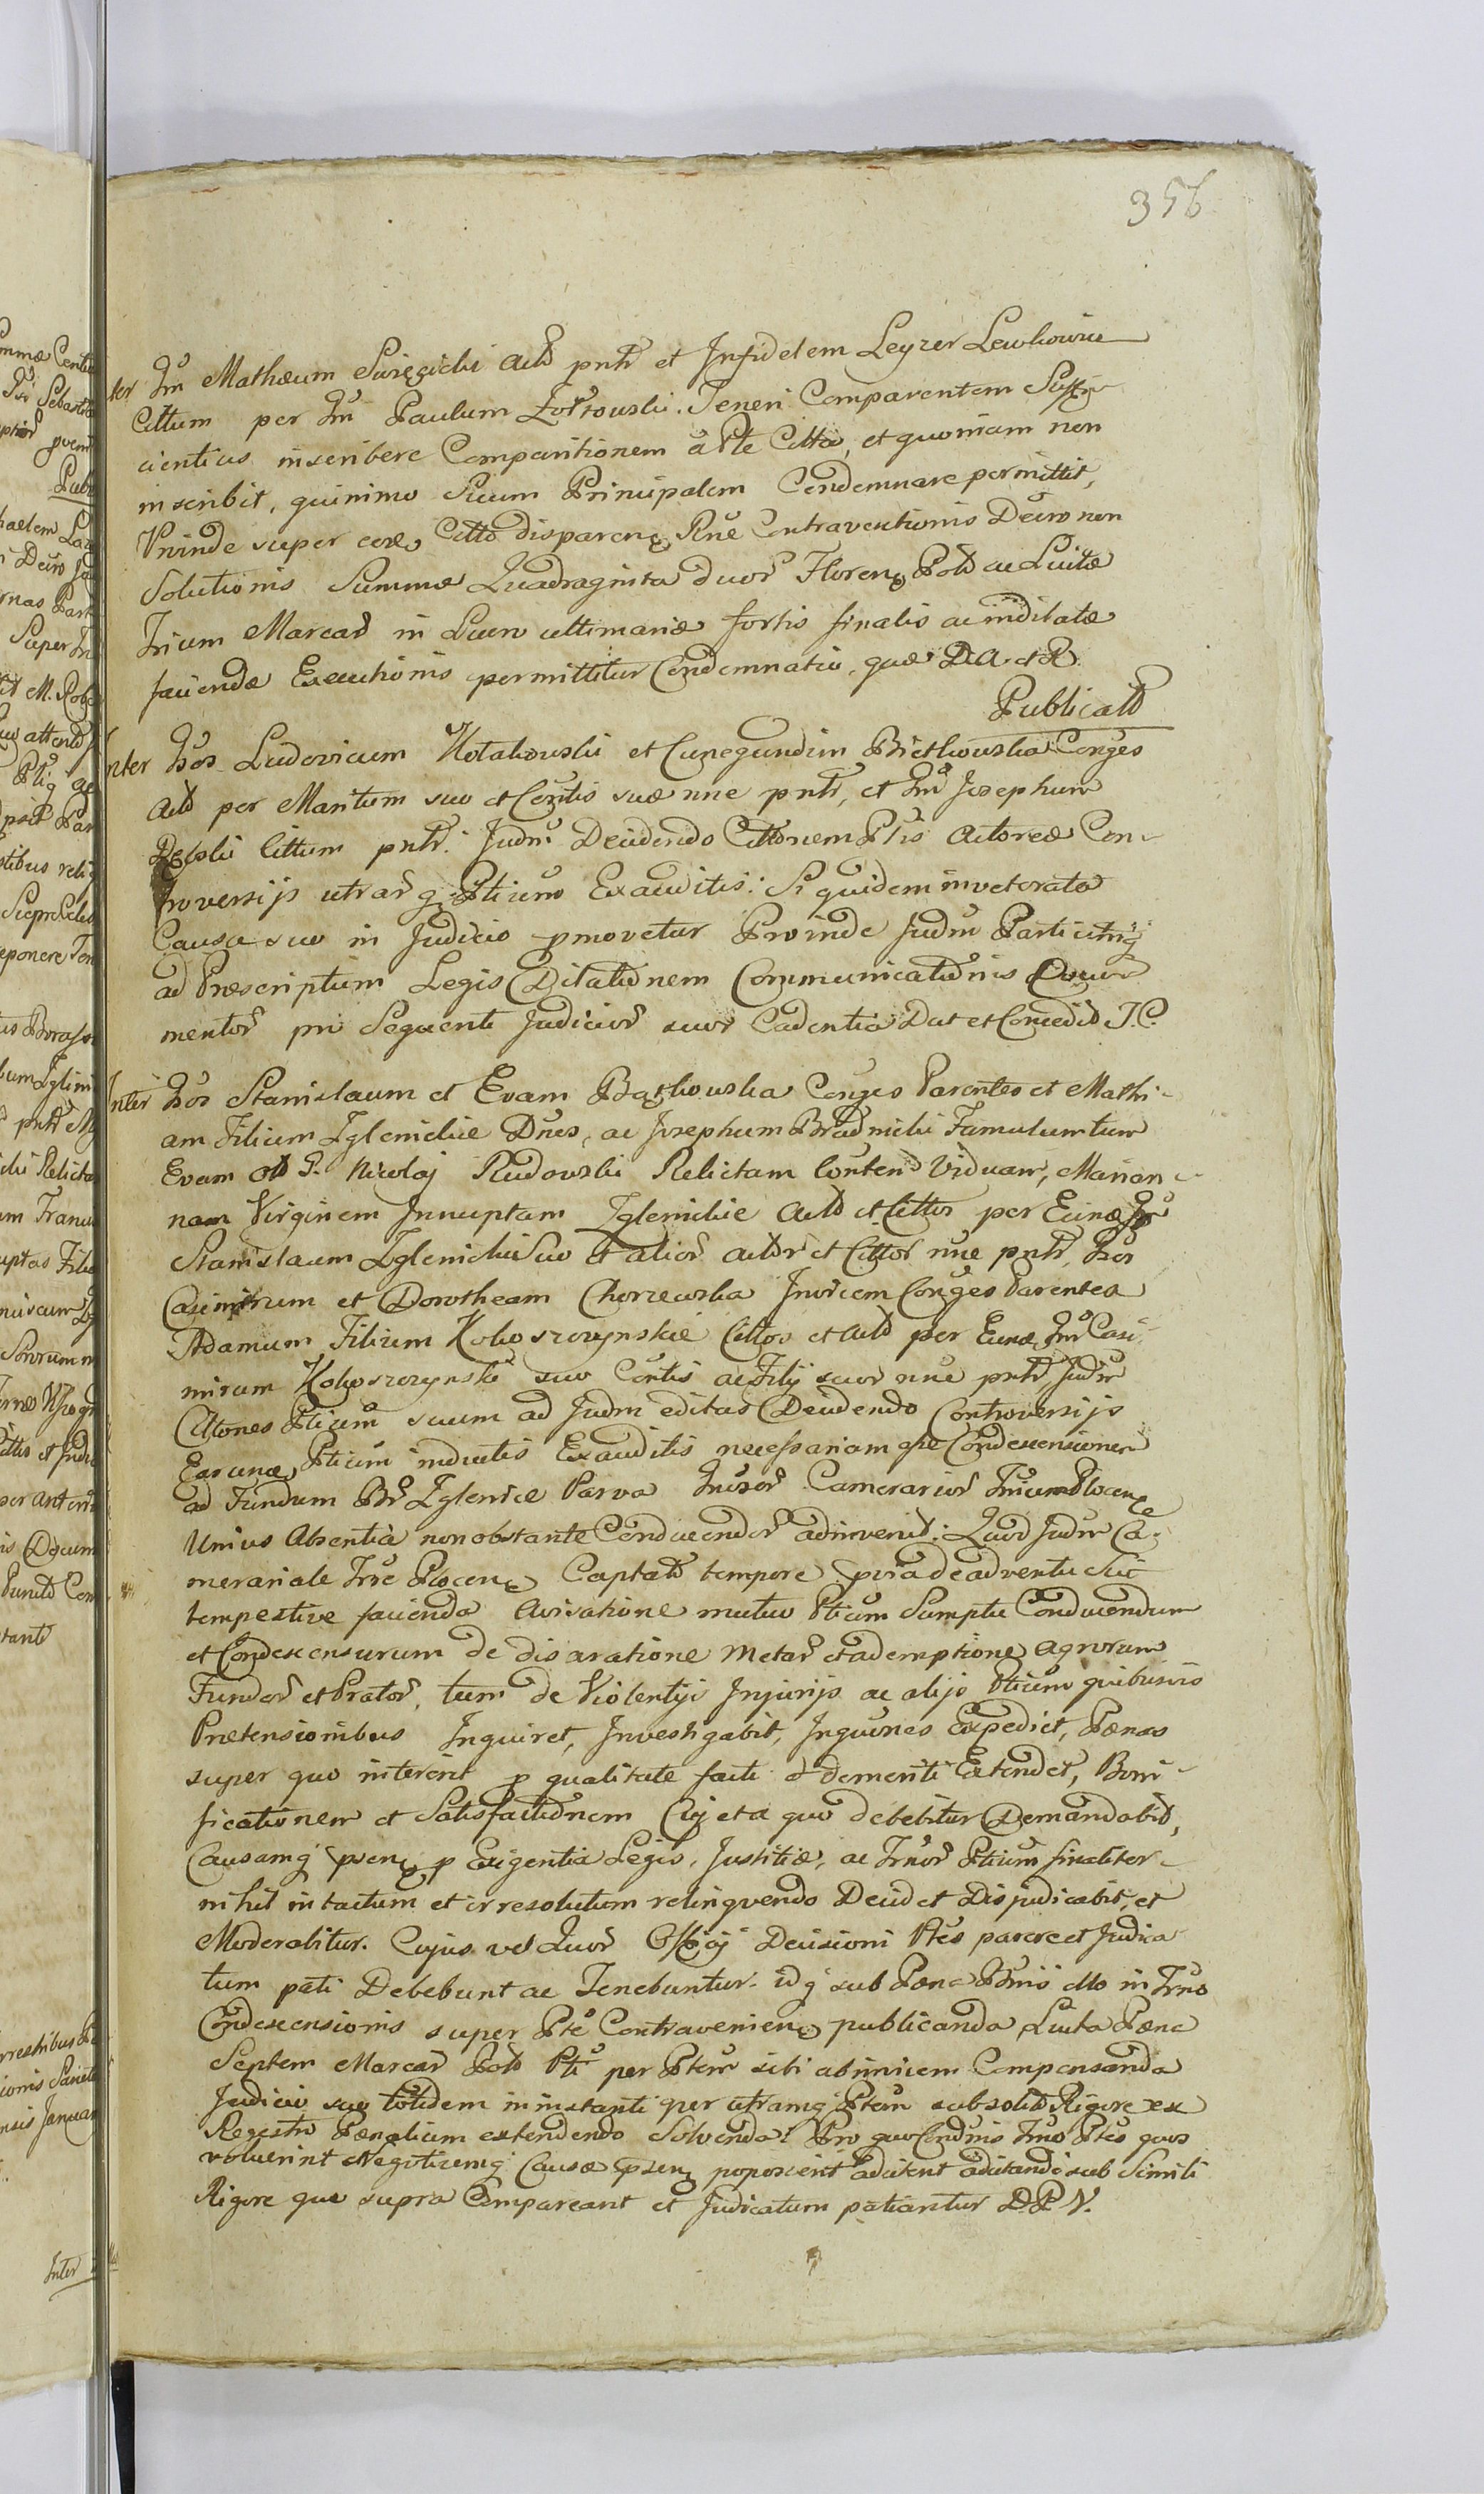 356
ter Gm Mathæum Święcicki Actô pntê et Infidelem Leyzer Lewkowicz
Cittum per Gm Paulum Zołtowski. Teneri Comparentem Suffi-
cientius inscribere Comparitionem à Pte Citta, et quoniam non
inscribit, quinimo Suum Principalem Condemnare permittit,
Proinde super eodē Citto disparenẽ Rne Contraventionis Decro non
Solutionis Summæ Quadraginta duorũ Floren Polô ac Luitæ
Trium Marcarũ in Lucro ultimariæ fortis finalis ac inditatæ
faciendæ Executionis permittitur Condemnatio, quæ D. A. et R.
Publicatô
Inter Gsos Ludovicum Kotakowski et Cunegundim Bietkowska Conges
Actô per Maritum suo et Conttis suæ nne pntê, et Gm Josephum
Cittum pntê. Judm Decidendo Cittonem Ptis Actoreæ Con-
troversijs utrarq Ptium Exauditis: Siquidem inveterata
Causa suo in Judicio pmovetur Proinde Judm Particibusq
ad Præscriptum Legis Dilationem Communicationis Docu-
mentorũ pro Sequenti Judiciorũ suorũ Cadentia Dat et Concedit J. C.
Inter Gsos Stanislaum et Evam Bątkowska Conges Parentes et Mathi-
am Filium Zglenickie Dnes, ac Josephum Brudnicki Famulum tum
Evam olô G. Nicolaj Rudowski Relictam Conten Viduam, Marian-
nam Virginem Innuptam Zglenickie Actô et Cittos per Eund Gm
Stanislaum Zglenicki Suo et aliorũ actôr et Cittor nne pntê, Gsos
Casimirum et Dorotheam Chorzewska Invicem Conges Parentes
Adamum Filium Kokoszczynskie Cittos et Actô per Eund Gm Casi-
mirum Kokoszczynski suo Conttis ac Filij suorũ nne pntê Judm
Cittones Ptium suum ad Judm editas Decidendo Controversijs
Earund Ptium inductis Exauditis necessariam esse Condescensionem
ad Fundum Br Zglenice Parva Gnsorũ Camerariorũ Trium Plocen
Unius Absentia non obstante Conducendorũ adinvenit: Quod Judm Ca-
merariale Trre Plocen Captato tempore pria de adventu Sui
tempestive facienda Avisatione mutuo Ptium Sumptu Conducendum
et Condescensurum de disaratione Metarũ et ademptione agrorum
Fundorũ et Pratorũ, tum de Violentijs Injurijs ac alijs Ptium quibusvis
Prætensionibus Inquiret, Investigabit, Inquones Expediet, Pænas
super quo interent p qualitate facti et demeriti Extendet, Boni-
ficationem et Satisfactionem Cuj et a quo debebitur Demandabit,
Causamq psen p Exigentia Legis, Justitiæ, ac Trnor Ptium finaliter
nihil intactum et irresolutum relinquendo Decidet Disjudicabit, et
Moderabitur. Cujus vel Quorũ Offoj Decisioni Ptes parere et Judica-
tum pati Debebunt ac Tenebuntur. idq sub Pæna Bnnis Mo in Trno
Condescensionis super Pte Contravenien publicanda Luita Pæna
Septem Marcarũ Polô Pti per Ptem sibi abinvicem Compensanda
Judicio suo totidem in instanti per utramq Ptem sub solito Rigore ex
Regestro Pænalium extendendo Solvenda: Pro quo Condnis Trno Ptes quos
voluerint Negotiumq Causæ psen poposcerit adcitent adcitandi sub Simili
Rigore quo supra Compareant et Judicatum patiantur D. P. V.